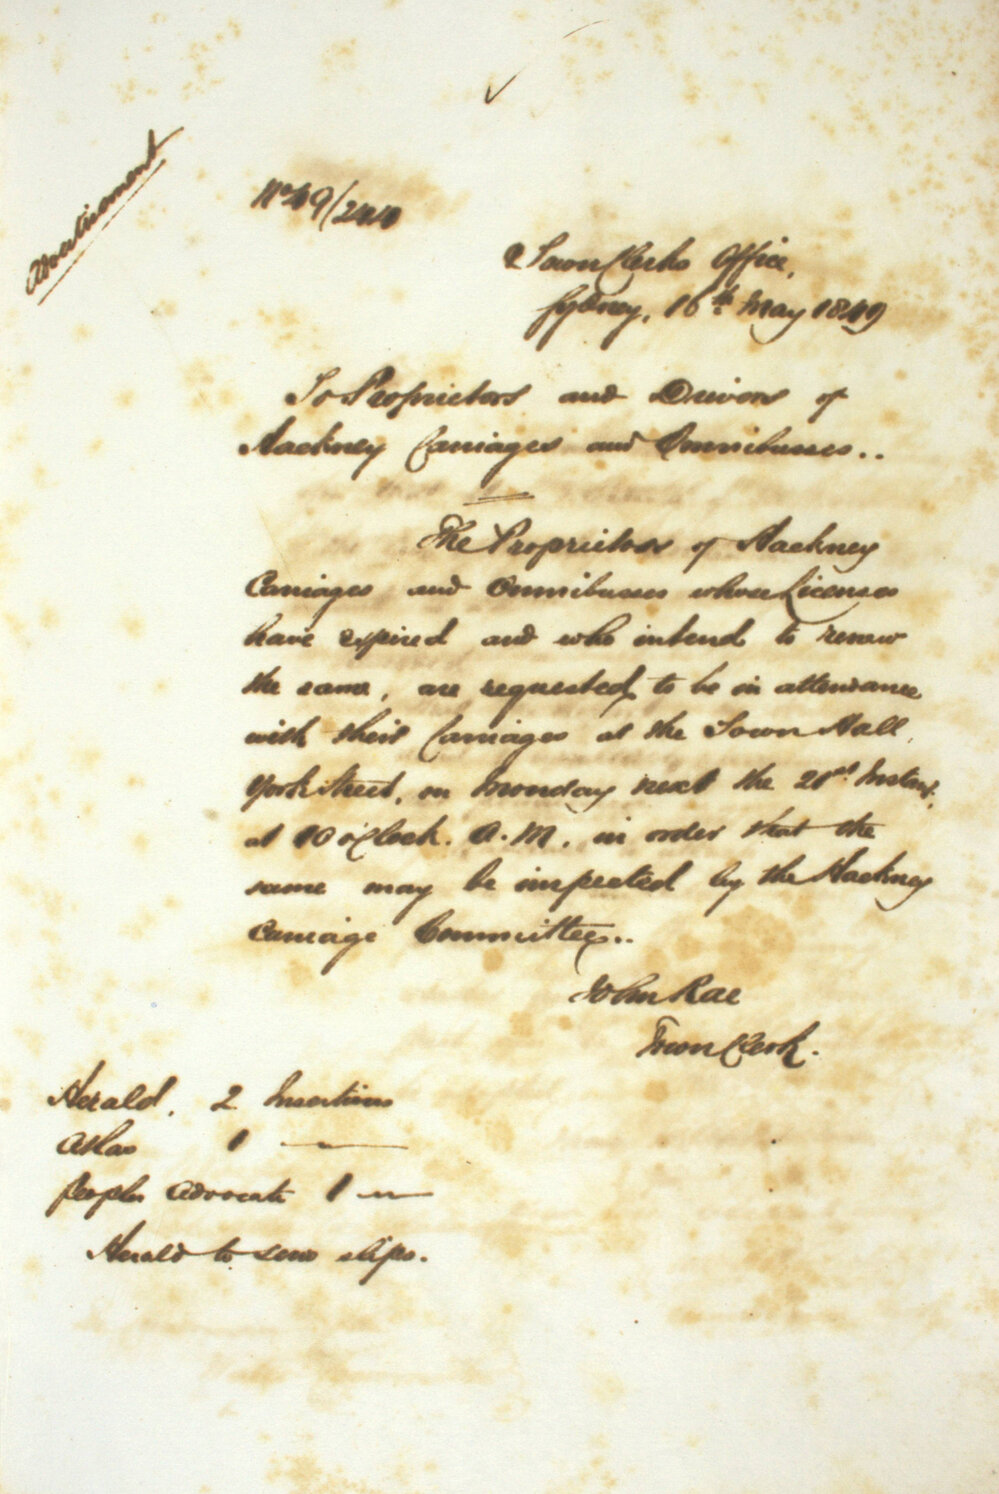 Advertisement
No 49/244
Town Clerks Office,
Sydney, 16th May 1849
To Proprietors and Drivers of
Hackney Carriages and Omnibusses..
The Proprietors of Hackney
Carriages and Omnibusses whose Licenses
have expired and who intend to renew
the same, are requested to be in attendance
with their Carriages at the Town Hall,
York Street, on Monday next the 21st Instant,
at 10 o'Clock. A.M. in order that the
same may be inspected by the Hackney
Carriage Committee..
John Rae
Town Clerk.
Herald, 2 Insertions
Atlas 1 —
Peoples Advocate 1 —
Herald to send slips.